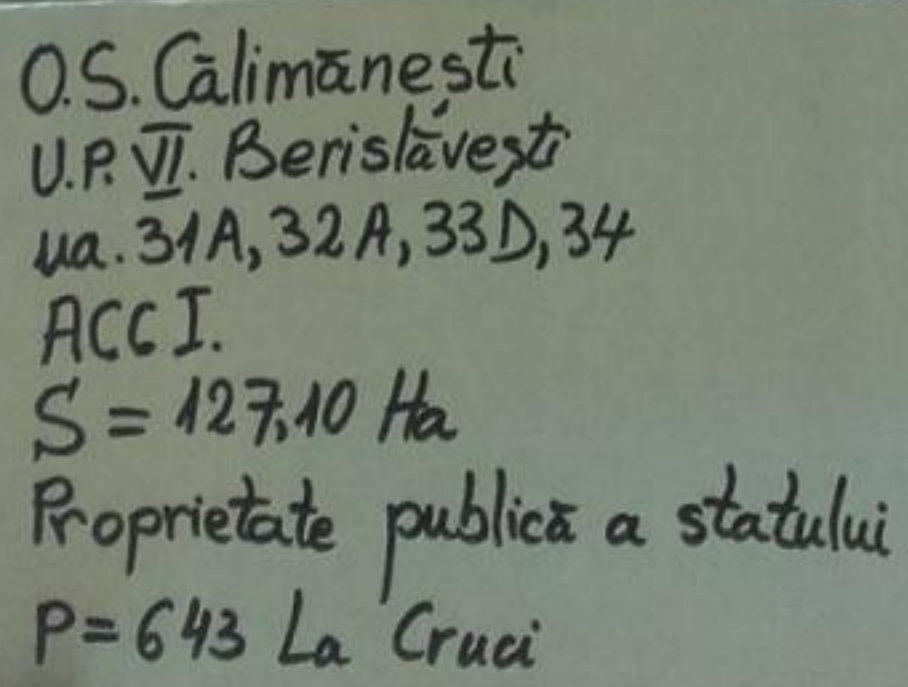 O.S. Călimănești
U.P. VI. Berislăvești
ua. 31A, 32A, 33D, 34
ACC I.
S = 127,10 Ha
Proprietate publică a statului
P = 643 La Cruci